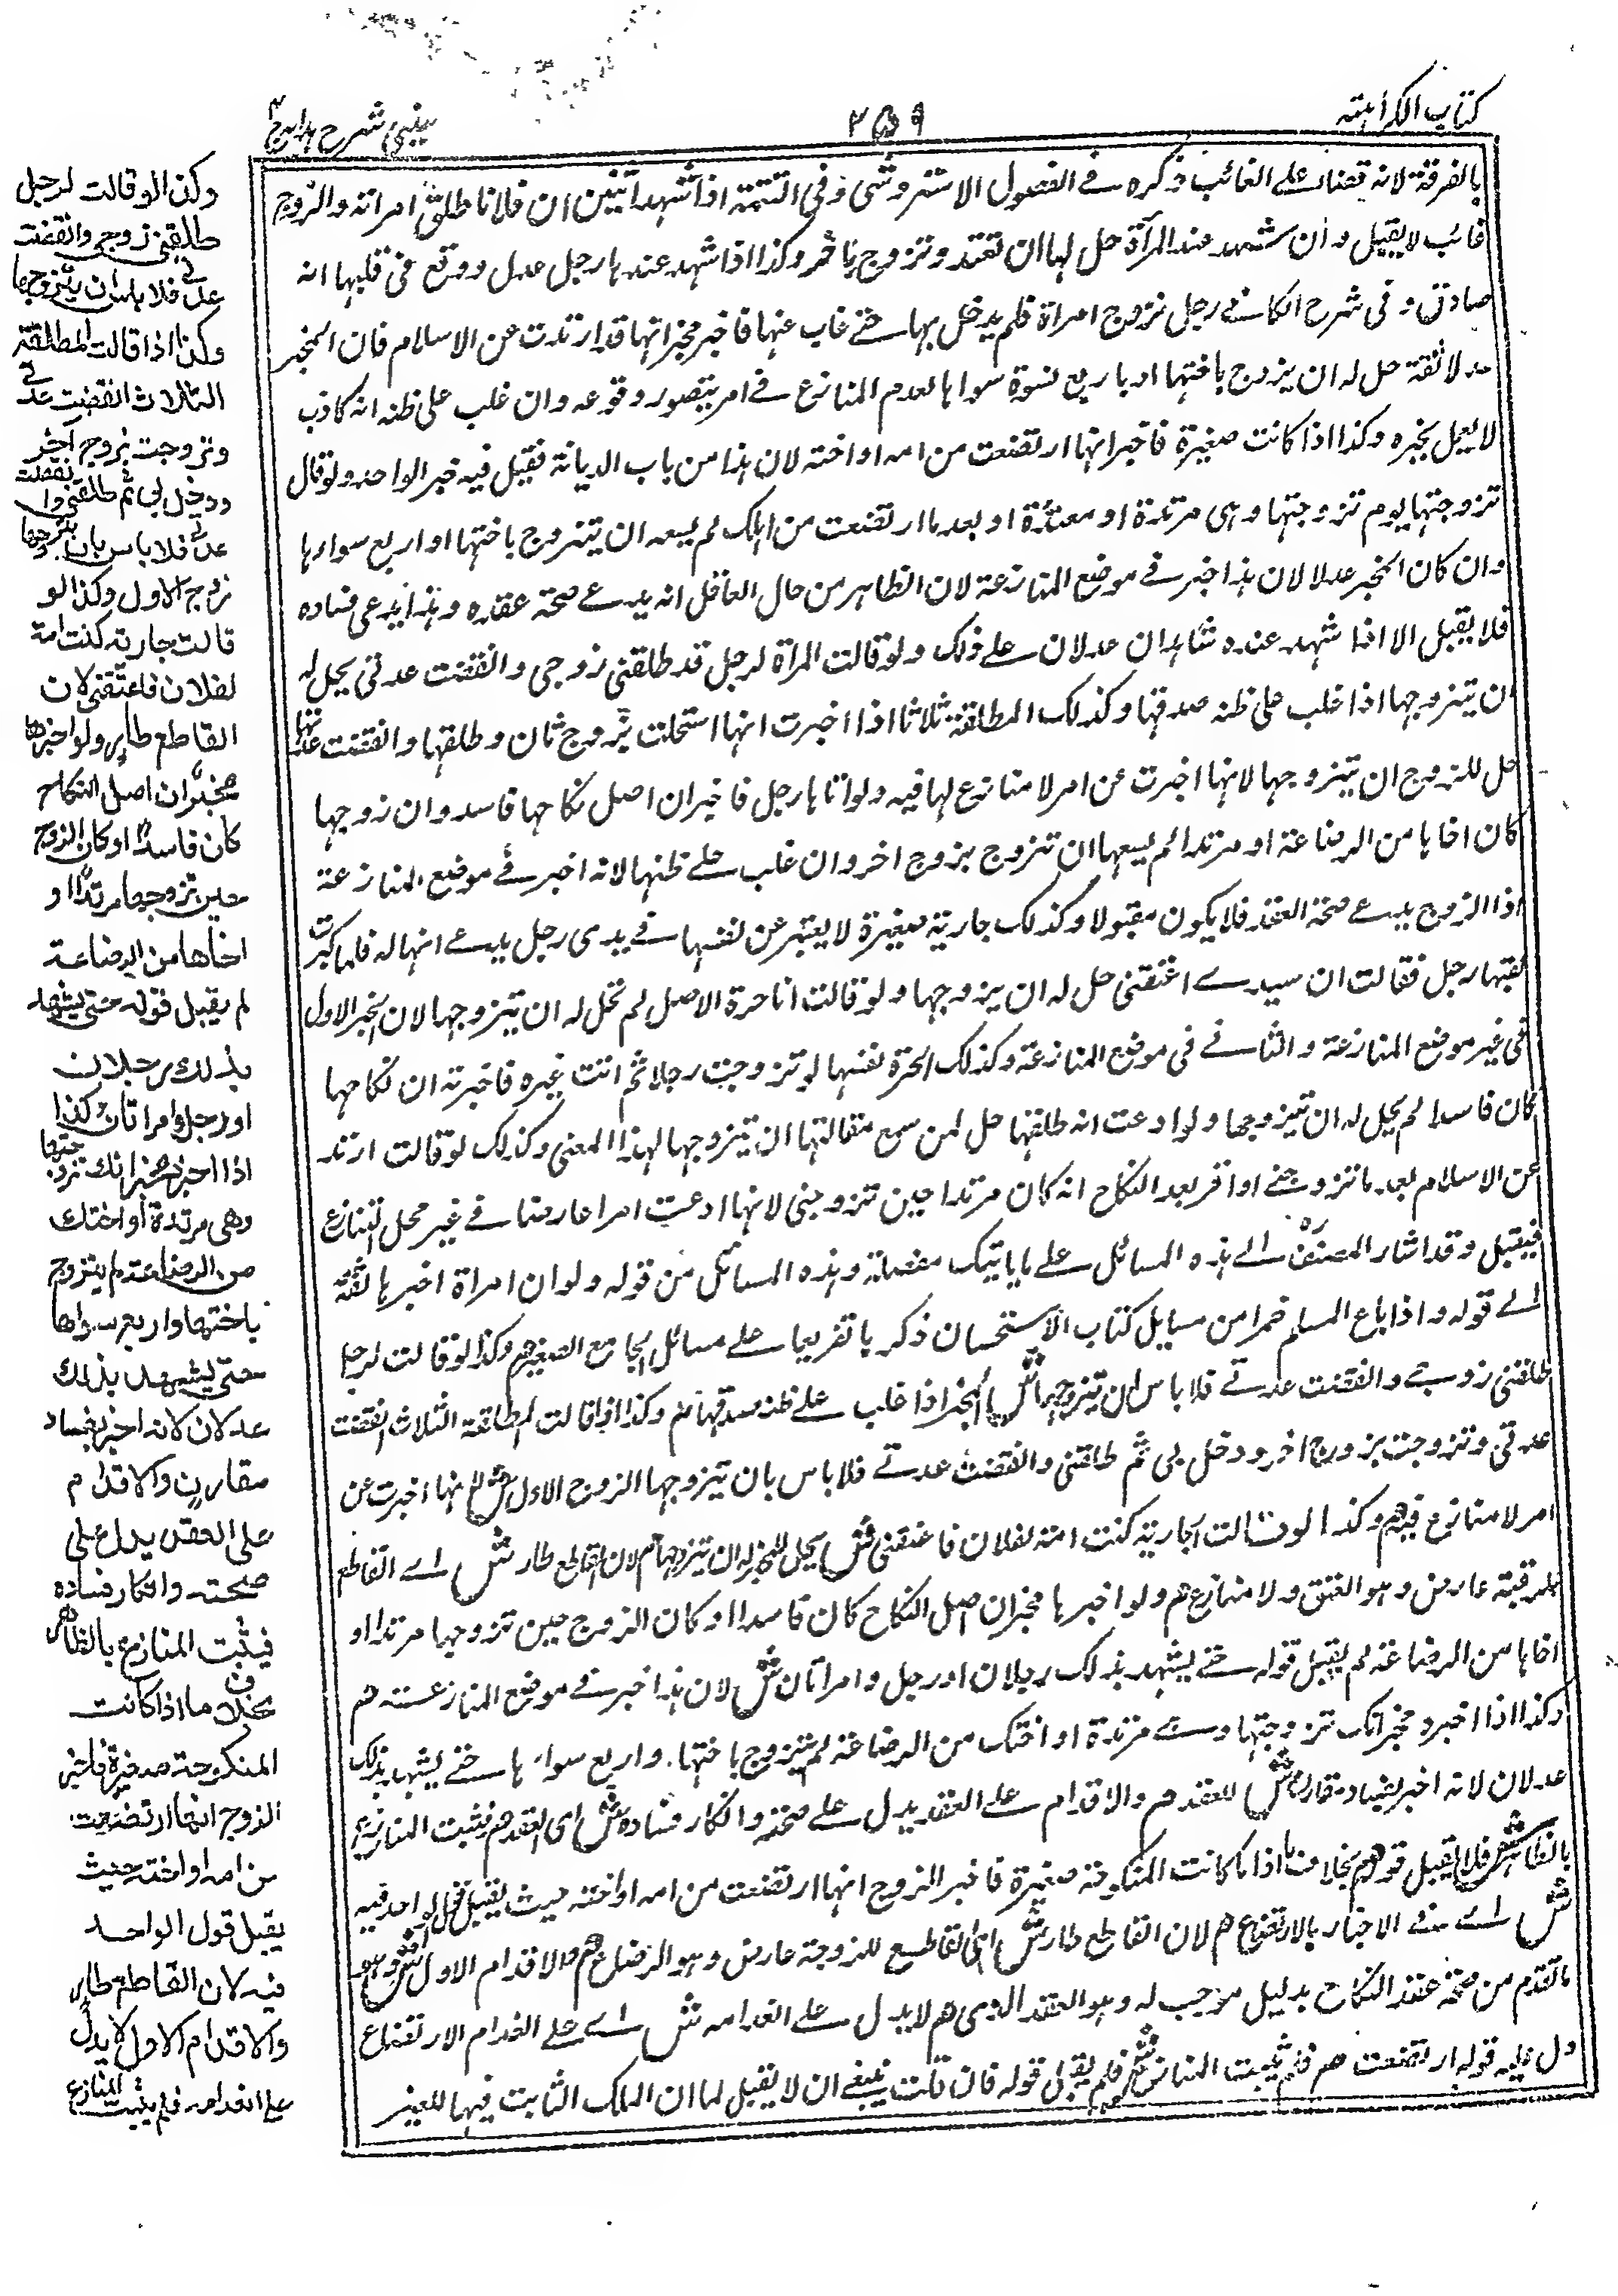 كتاب الكراهية
٢٥٩
عيني شرح هداية ج ٤
بالفرقة لانه قضاء على الغائب ذكره في الفصول الاستروشنى وفي التتمة اذا شهد اثنين ان فلانا طلق امراته والزوج
غائب لا يقبل وان شهد عند المرأة حل لها ان تعتد وتزوج بآخر وكذا اذا شهد عندها رجل عدل ووقع في قلبها انه
صادق وفي شرح الكافي رجل تزوج امراة فلم يدخل بها حتى غاب عنها فاخبر مخبر انها قد ارتدت عن الاسلام فان المخبر
عدلا ثقة حل له ان يتزوج باختها او باربع نسوة سواها لعدم المنازع في امر يتصور وقوعه وان غلب على ظنه انه كاذب
لا يعمل بخبره وكذا اذا كانت صغيرة فاخبر انها ارتضعت من امه او اخته لان هذا من باب الديانة فيقبل فيه خبر الواحد ولو قال
تزوجتها يوم تزوجتها وهى مرتدة او معتدة او بعد ما ارتضعت من امك لم يسعه ان يتزوج باختها او اربع سواها
وان كان المخبر عدلا لان هذا خبر في موضع المنازعة لان الظاهر من حال العاقل انه يدعى صحة عقده وهذا يدعى فساده
فلا يقبل الا اذا شهد عنده شاهدان عدلان على ذلك ولو قالت المرأة لرجل قد طلقنى زوجى وانقضت عدتى يحل له
ان يتزوجها اذا غلب على ظنه صدقها وكذلك المطلقة ثلاثا اذا اخبرت انها استحلت بزوج ثان وطلقها وانقضت عدتها
حل للزوج ان يتزوجها لانها اخبرت عن امر لا منازع لها فيه ولو اتاها رجل فاخبر ان اصل نكاحها فاسد وان زوجها
كان اخاها من الرضاعة او مرتدا لم يسعها ان تتزوج بزوج اخر وان غلب على ظنها لانه اخبر في موضع المنازعة
اذا الزوج يدعى صحة العقد فلا يكون مقبولا وكذلك جارية صغيرة لا يعتبر عن نفسها في يدى رجل يدعى انها له فلما كبرت
لقيها رجل فقالت ان سيدى اعتقنى حل له ان يتزوجها ولو قالت انا حرة الاصل لم تحل له ان يتزوجها لان الخبر الاول
في غير موضع المنازعة والثانى في موضع المنازعة وكذلك الحرة نفسها لو تزوجت رجلا ثم اتت غيره فاخبرته ان نكاحها
كان فاسدا لم يحل له ان يتزوجها ولو ادعت انه طلقها حل لمن سمع مقالتها ان يتزوجها لهذا المعنى وكذلك لو قالت ارتد
عن الاسلام بعد ما تزوجنى او اقر بعد النكاح انه كان مرتدا حين تزوجنى لانها ادعت امرا عارضا في غير محل التنازع
فيقبل وقد اشار المصنف ره الى هذه المسائل على ما ياتيك مفصلة وهذه المسائل من قوله ولو ان امراة اخبرها ثقة
الى قوله واذا باع المسلم خمرا من مسايل كتاب الاستحسان ذكرها تفريعا على مسائل الجامع الصغير هم وكذا لو قالت لرجل
طلقنى زوجى وانقضت عدتى فلا باس ان يتزوجها ش اى المخبر اذا غلب على ظنه صدقها هم وكذا اذا قالت المطلقة الثلاث انقضت
عدتى وتزوجت بزوج اخر ودخل بى ثم طلقنى وانقضت عدتى فلا باس بان يتزوجها الزوج الاول ش لانها اخبرت عن
امر لا منازع فيه هم وكذا لو قالت جارية كنت امة لفلان فاعتقنى ش يحل للمخبر له ان يتزوجها هم لان القاطع طار ش اى القاطع
للرقبة عارض وهو العتق ولا منازع هم ولو اخبرها مخبر ان اصل النكاح كان فاسدا او كان الزوج حين تزوجها مرتدا او
اخاها من الرضاعة لم يقبل قوله حتى يشهد بذلك رجلان او رجل وامراتان ش لان هذا خبر في موضع المنازعة هم
وكذا اذا اخبره مخبر انك تزوجتها وهى مرتدة او اختك من الرضاعة لم يتزوج باختها. واربع سواها حتى يشهد بذلك
عدلان لانه اخبر بفساد مقارن ش للعقد هم والاقدام على العقد يدل على صحته وانكار فساده ش اى العقد هم فيثبت المنازع
بالظاهر ش فلا يقبل قوله هم بخلاف ما اذا ما كانت المنكوحة صغيرة فاخبر الزوج انها ارتضعت من امه او اخته حيث يقبل قول الواحد فيه
ش اى في الاخبار بالارتضاع هم لان القاطع طار ش اى القاطع للزوجة عارض وهو الرضاع هم والاقدام الاول ش وهو
ما تقدم من صحة عقد النكاح بدليل موجب له وهو العقد الذى هم لا يدل على انعدامه ش اى على انعدام الارتضاع
دل عليه قوله ارتضعت هم فلم يثبت المنازع ش فلم يقبل قوله فان قلت ينبغى ان لا يقبل لما ان الملك الثابت فيها للغير
وكذا لو قالت لرجل
طلقني زوجي وانقضت
عدتي فلا باس ان يتزوجها
وكذا اذا قالت المطلقة
الثلاث انقضت عدتي
وتزوجت بزوج آخر
ودخل بي ثم طلقني وانقضت
عدتي فلا باس بان يتزوجها
زوج الاول وكذا لو
قالت جارية كنت امة
لفلان فاعتقني لان
القاطع طار ولو اخبرها
مخبر ان اصل النكاح
كان فاسدا او كان الزوج
حين تزوجها مرتدا او
اخاها من الرضاعة
لم يقبل قوله حتى يشهد
بذلك رجلان
او رجل وامراتان وكذا
اذا اخبره مخبر انك تزوجتها
وهي مرتدة او اختك
من الرضاعة لم يتزوج
باختها واربع سواها
حتى يشهد بذلك
عدلان لانه اخبر بفساد
مقارن والاقدام
على العقد يدل على
صحته وانكار فساده
فيثبت المنازع بالظاهر
بخلاف ما اذا كانت
المنكوحة صغيرة فاخبر
الزوج انها ارتضعت
من امه او اخته حيث
يقبل قول الواحد
فيه لان القاطع طار
والاقدام الاول لا يدل
على انعدامه فلم يثبت المنازع